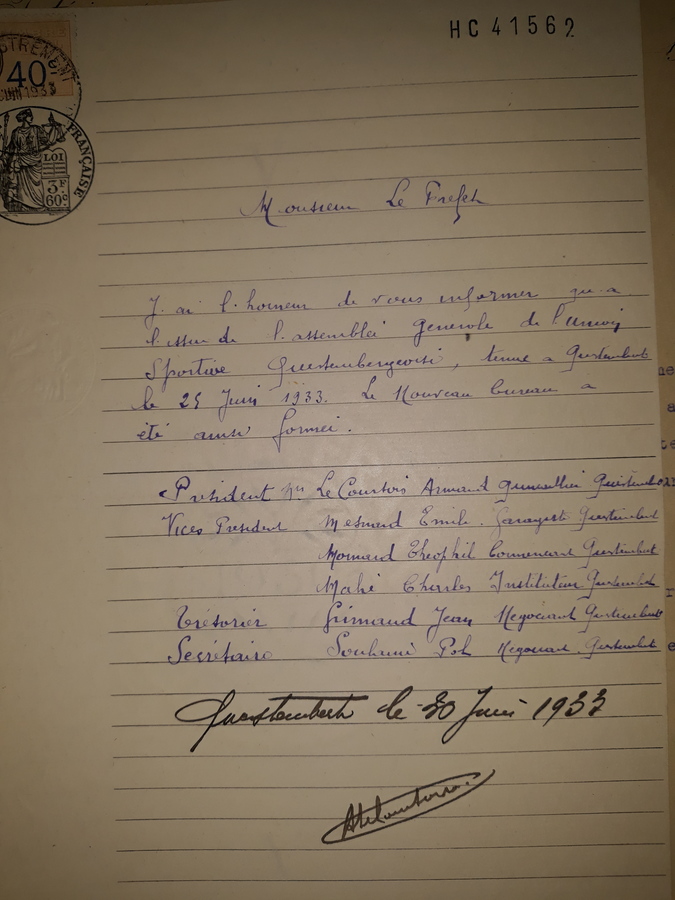 HC 41562
40
JUIN 1933
FRANÇAISE
LOI
3F
60c
Monsieur Le Prefet
J. ai l. honneur de vous informer qu. a
l. issu de l. assemblei generole de l'Union
Sportive Questembergeoise, tenue a Questembert
le 25 Juin 1933. Le Nouveau bureau a
été ainsi formei.
President Mr Le Courtois Armand Questembert
Vices President Mesnard Emile. Garagiste Questembert
Monnard Theophil Commercant Questembert
Mahé Charles Instituteur Questembert
Trésorier Grimaud Jean Negociant Questembert
Secrétaire Pol Negociant Questembert
Questembert le 30 Juin 1933